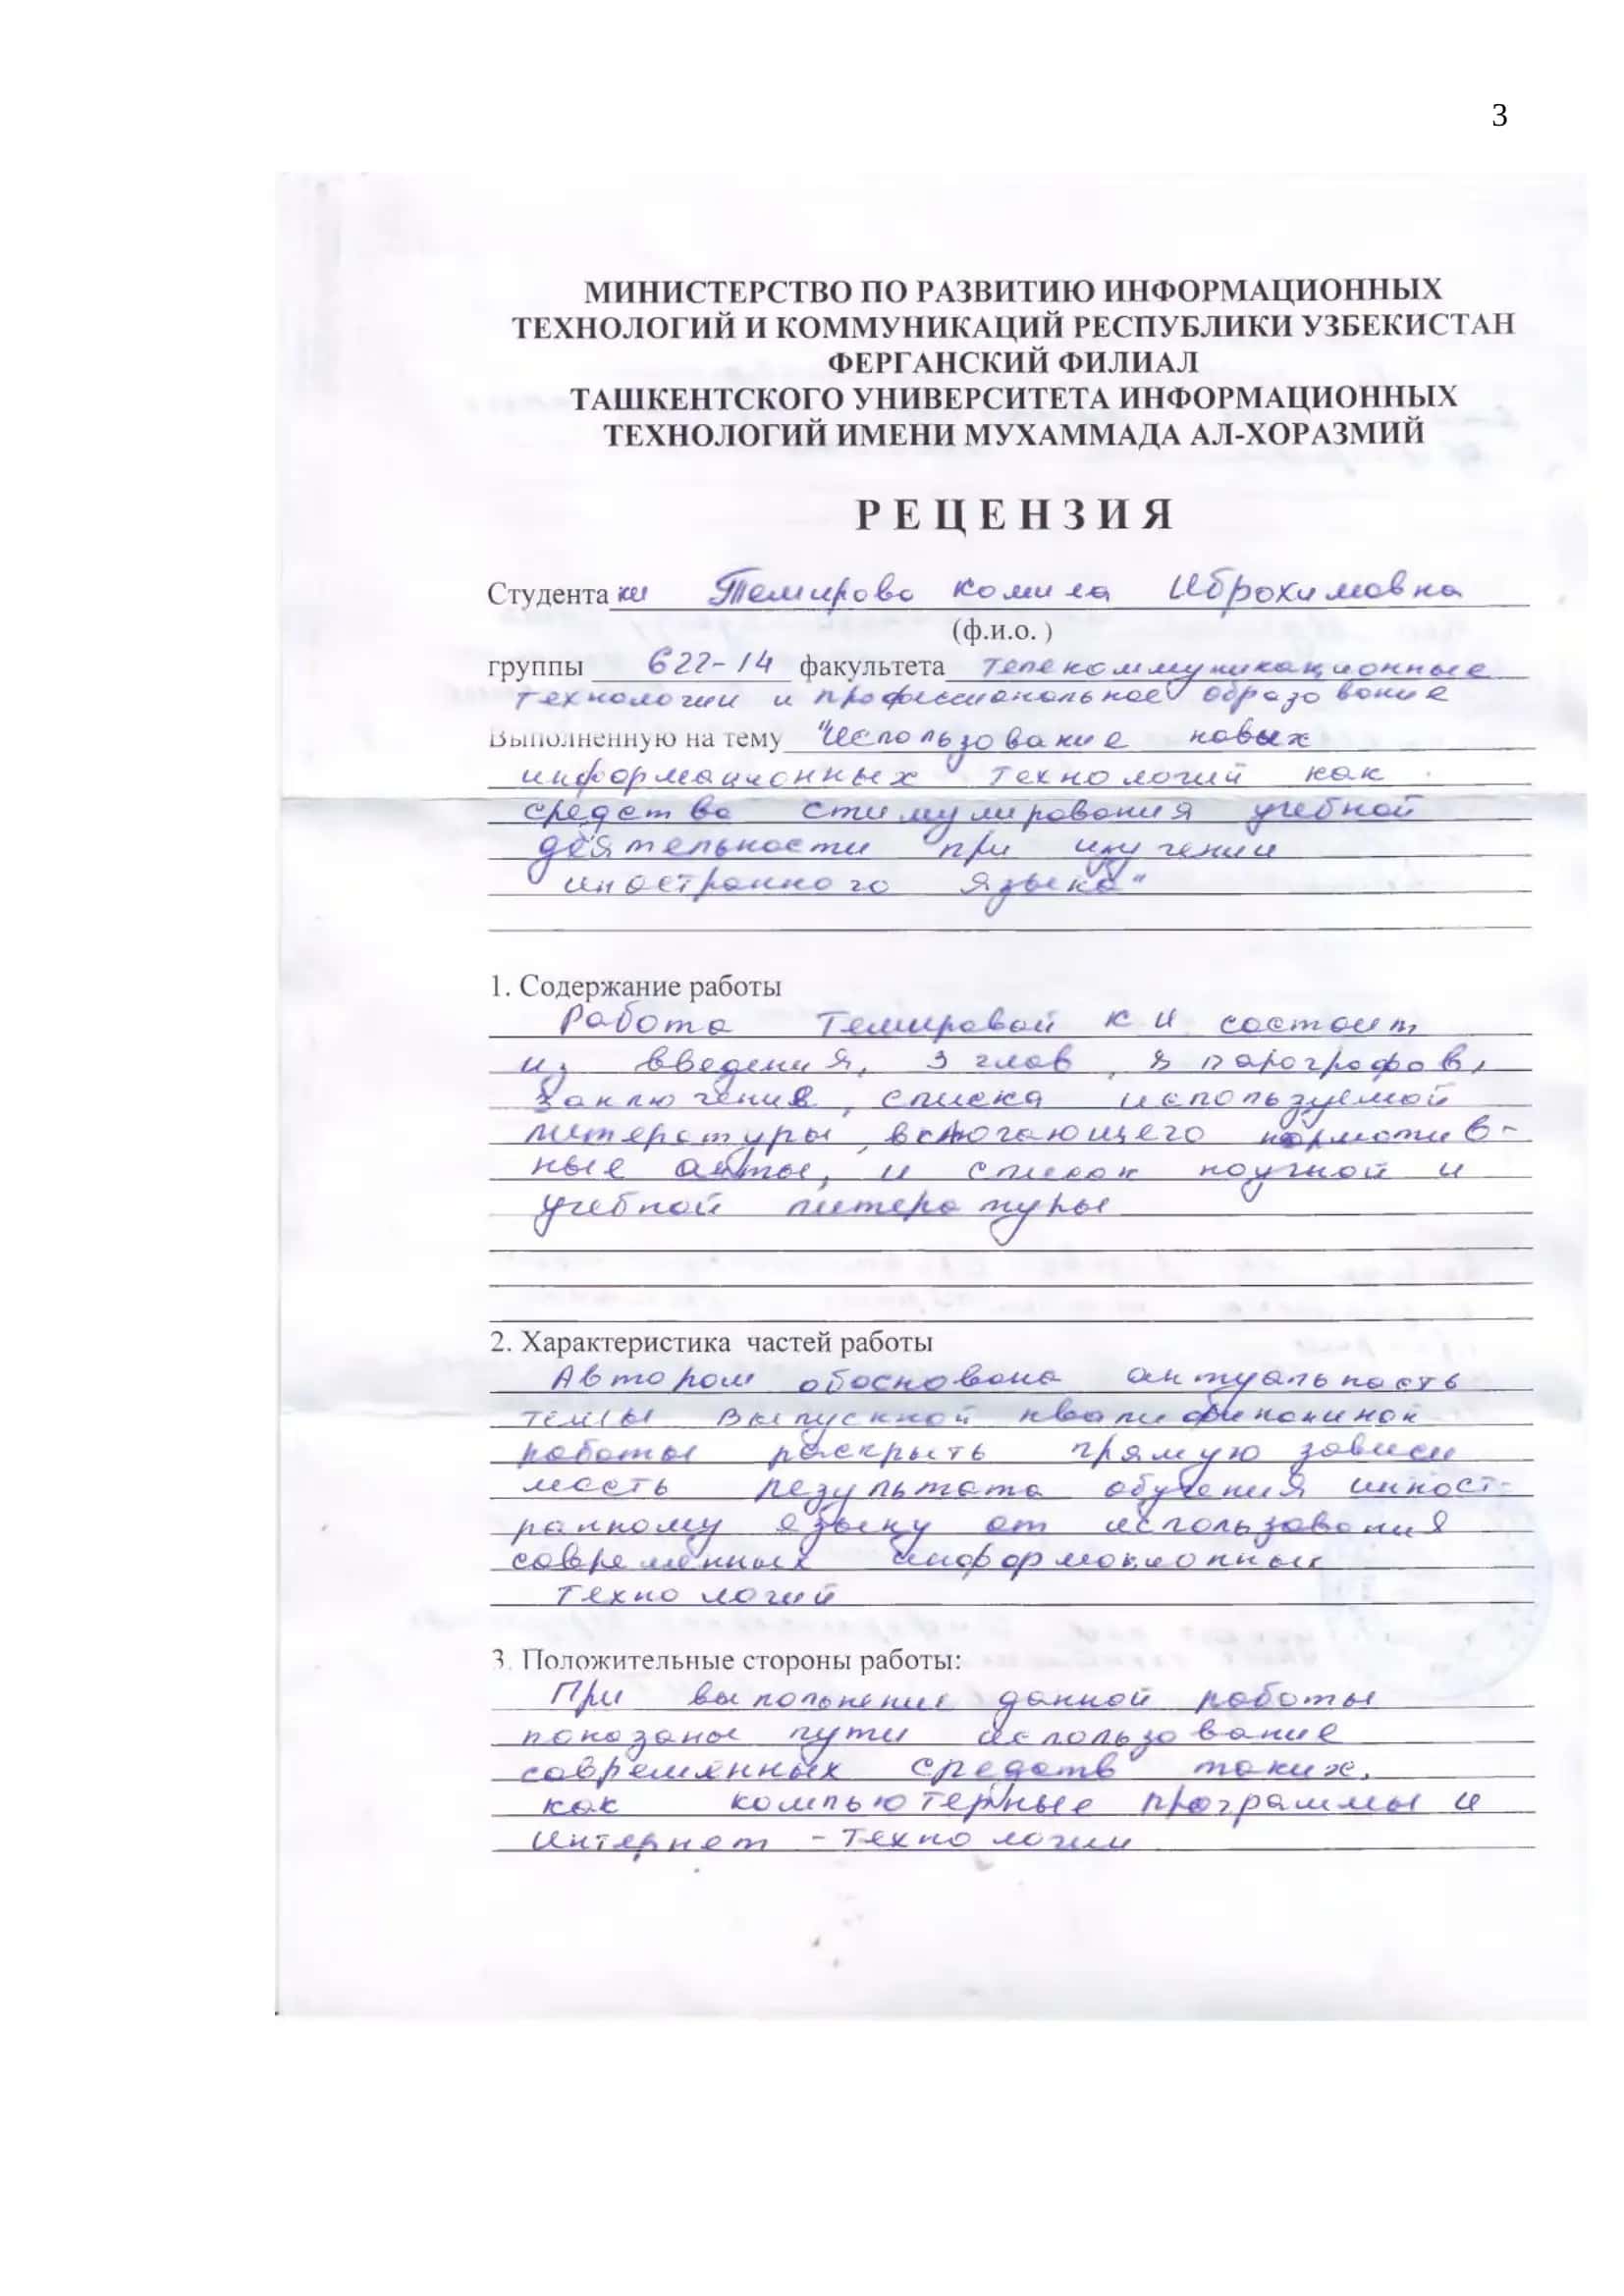 3
МИНИСТЕРСТВО ПО РАЗВИТИЮ ИНФОРМАЦИОННЫХ
ТЕХНОЛОГИЙ И КОММУНИКАЦИЙ РЕСПУБЛИКИ УЗБЕКИСТАН
ФЕРГАНСКИЙ ФИЛИАЛ
ТАШКЕНТСКОГО УНИВЕРСИТЕТА ИНФОРМАЦИОННЫХ
ТЕХНОЛОГИЙ ИМЕНИ МУХАММАДА АЛ-ХОРАЗМИЙ
РЕЦЕНЗИЯ
Студентаки Темирова Комила Иброхимовна
(ф.и.о. )
группы 622-14 факультета телекоммуникационные
технологии и профессиональное образование
Выполненную на тему "Использование новых
информационных технологий как
средство стимулирования учебной
деятельности при изучении
иностранного языка"
1. Содержание работы
Работа Темировой К И состоит
из введения, 3 глав, 8 парографов,
Заключения, списка используемой
литературы, включающего норматив-
ные акты, и список научной и
учебной литературы
2. Характеристика частей работы
Автором обоснована актуальность
темы выпускной
работы раскрыть прямую зависи
мость результата обучения инност-
ранному языку от использования
современных информационных
технологий
3. Положительные стороны работы:
При выполнение данной работы
показаны пути использование
современных средств таких,
как компьютерные программы и
Интернет - технологии